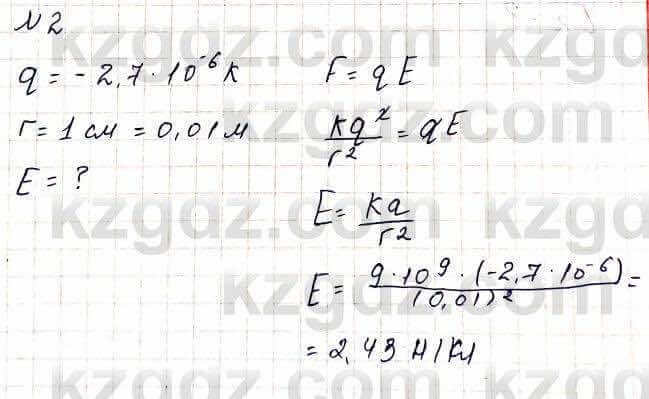 №2
q = -2,7·10⁻⁶ К
r = 1 см = 0,01 м
E = ?
F = qE
kq²/r² = qE
E = kq/r²
E = 9·10⁹·(-2,7·10⁻⁶)/(0,01)² =
= 2,43 Н/Кл
kzgdz.com
kzgdz.com
kzgdz.com
kzgdz.com
kzgdz.com
kzgdz.com